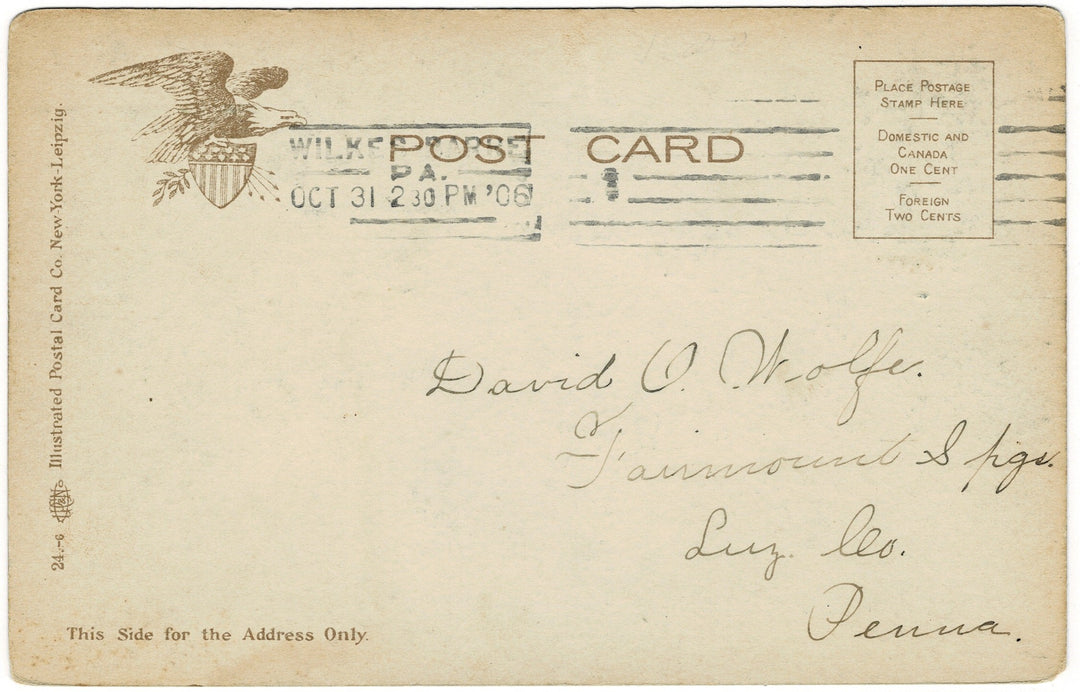 POST CARD
WILKES-BARRE
PA.
OCT 31 2 30 PM '06
1
PLACE POSTAGE
STAMP HERE
DOMESTIC AND
CANADA
ONE CENT
FOREIGN
TWO CENTS
Illustrated Postal Card Co. New-York-Leipzig.
24.-6
David O. Wolfe.
Fairmount Spgs.
Luz. Co.
Penna.
This Side for the Address Only.